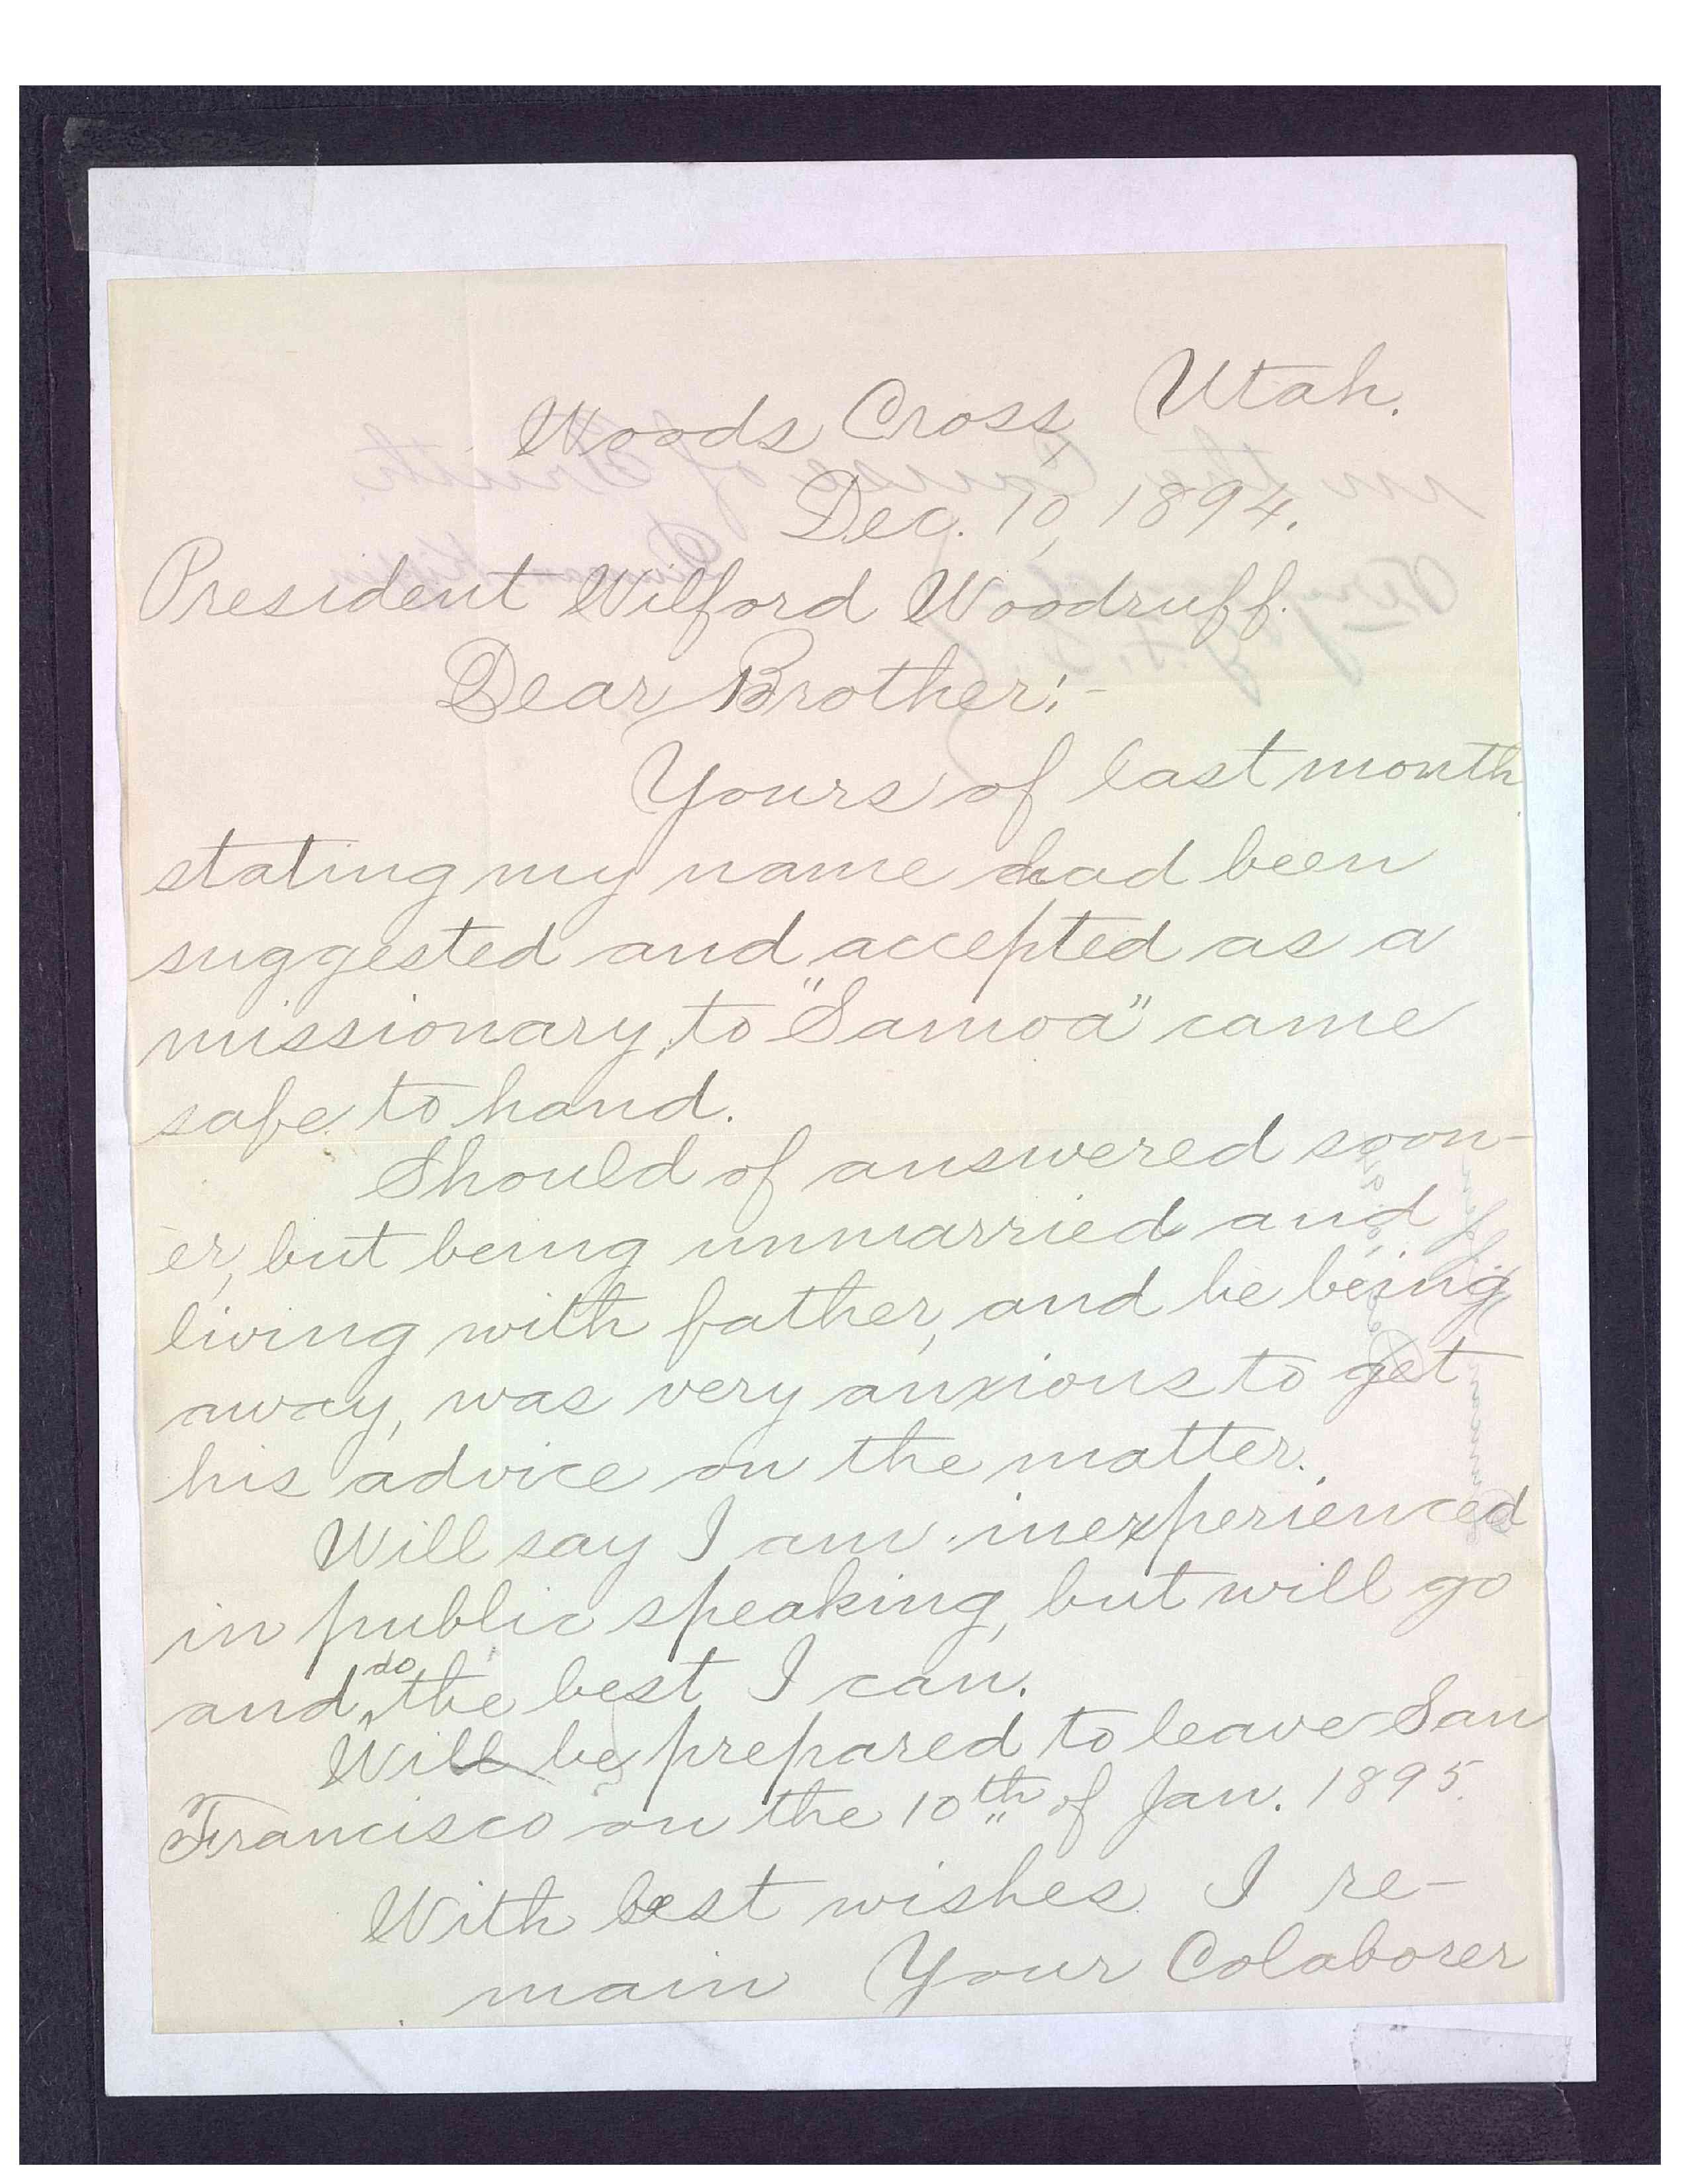 Woods Cross, Utah.
Dec. 10, 1894.
President Wilford Woodruff.
Dear Brother:-
Yours of last month
stating my name had been
suggested and accepted as a
missionary, to "Samoa" came
safe to hand.
Should of answered soon-
er, but being unmarried and
living with father, and he being
away, was very anxious to get
his advice on the matter.
Will say I am inexperienced
in public speaking, but will go
and do the best I can.
Will be prepared to leave San
Francisco on the 10th of Jan. 1895.
With best wishes I re-
main Your Colaborer
in the Cause of Truth.